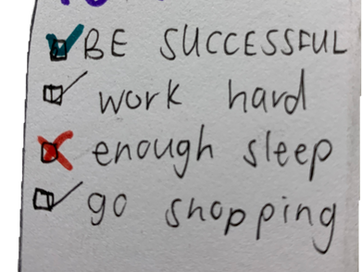 BE SUCCESSFUL
work hard
enough sleep
go shopping